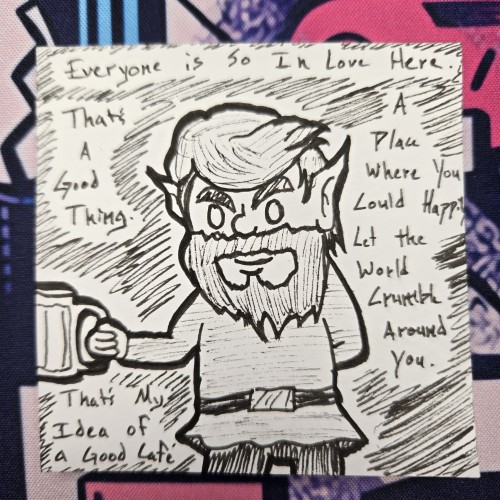 Everyone is So In Love Here.
That's
A
Good
Thing.
A
Place
Where You
Could Happily
Let the
World
Crumble
Around
You.
That's My
Idea of
a Good Cafe